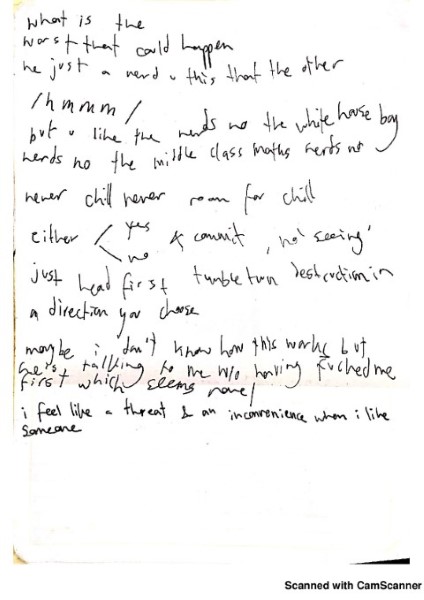 what is the
worst that could happen
he just a nerd u this that the other
/hmmm/
but u like the nerds no the white house boy
nerds no the middle class maths nerds no
never chill never room for chill
either yes & commit, 'no seeing'
no
just head first tumble turn destruction in
a direction you choose
maybe i don't know how this works but
he's talking to me w/o having fucked me
first which seems novel
i feel like a threat & an inconvenience when i like
someone
Scanned with CamScanner